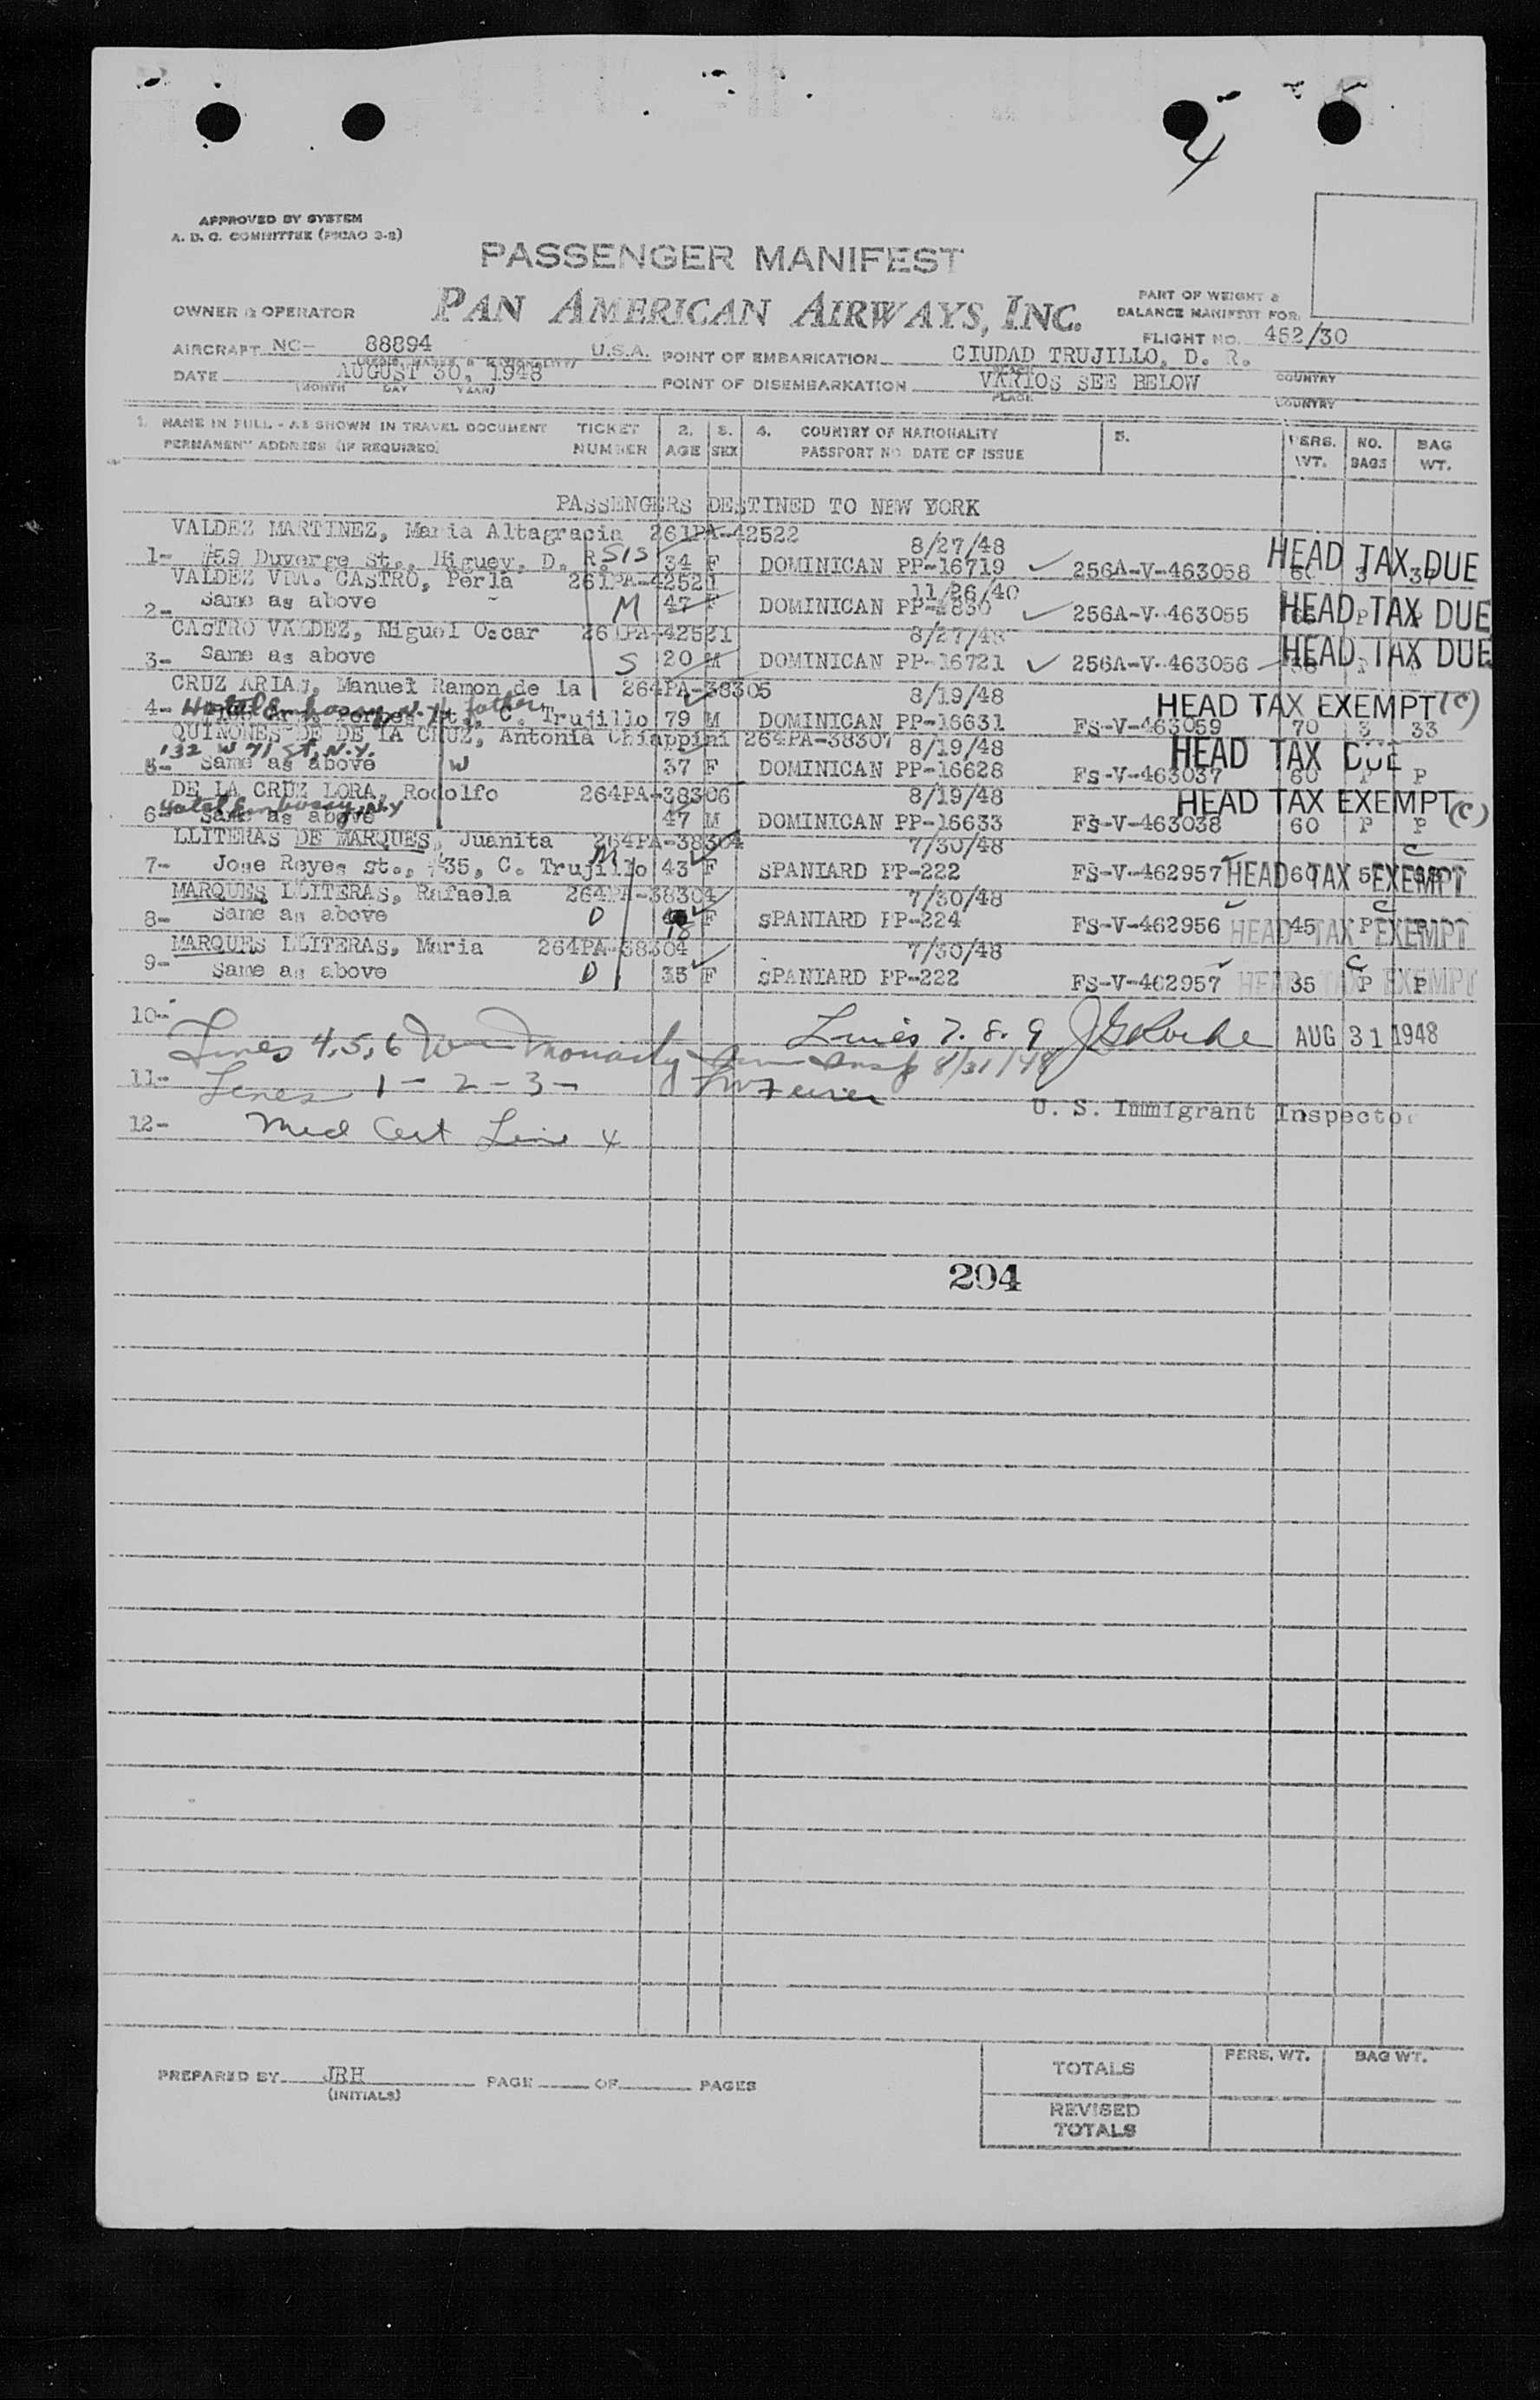 4
APPROVED BY SYSTEM
A. D. C. COMMITTEE (PICAO 3-2)
PASSENGER MANIFEST
OWNER OR OPERATOR PAN AMERICAN AIRWAYS, INC.
PART OF WEIGHT &
BALANCE MANIFEST FOR:
FLIGHT NO. 452/30
AIRCRAFT NC- 88894 U.S.A. POINT OF EMBARKATION CIUDAD TRUJILLO, D. R.
DATE AUGUST 30, 1948 POINT OF DISEMBARKATION VARIOS SEE BELOW COUNTRY
(MONTH DAY YEAR) PLACE COUNTRY
1. NAME IN FULL - AS SHOWN IN TRAVEL DOCUMENT TICKET 2. 3. 4. COUNTRY OF NATIONALITY 5. PERS. NO. BAG
PERMANENT ADDRESS (IF REQUIRED) NUMBER AGE SEX PASSPORT NO DATE OF ISSUE WT. BAGS WT.
PASSENGERS DESTINED TO NEW YORK
VALDEZ MARTINEZ, Maria Altagracia 261PA-42522 8/27/48
1- #59 Duverge St., Higuey, D. R. SIS 34 F DOMINICAN PP-16719 256A-V-463058 HEAD TAX DUE
VALDEZ VDA. CASTRO, Perla 261PA-42521 11/26/40
2- Same as above M 47 F DOMINICAN PP-4830 256A-V-463055 HEAD TAX DUE
CASTRO VALDEZ, Miguel Oscar 261PA-42521 8/27/48
3- Same as above S 20 M DOMINICAN PP-16721 256A-V-463056 HEAD TAX DUE
CRUZ ARIAS, Manuel Ramon de la 264PA-38305 8/19/48 HEAD TAX EXEMPT (C)
4- Hotel Embassy N.Y. father C. Trujillo 79 M DOMINICAN PP-16631 FS-V-463059 70 3 33
QUINONES DE DE LA CRUZ, Antonia Chiappini 264PA-38307 8/19/48 HEAD TAX DUE
132 W 71 St, N.Y.
5- Same as above W 37 F DOMINICAN PP-16628 FS-V-463037 60 P P
DE LA CRUZ LORA, Rodolfo 264PA-38306 8/19/48 HEAD TAX EXEMPT (C)
Hotel Embassy, N.Y
6- Same as above 47 M DOMINICAN PP-16633 FS-V-463038 60 P P
LLITERAS DE MARQUES, Juanita 264PA-38304 7/30/48 C
7- Jose Reyes st., #35, C. Trujillo M 43 F SPANIARD PP-222 FS-V-462957 HEAD TAX EXEMPT 60 5
MARQUES LLITERAS, Rafaela 264PA-38304 7/30/48 C
8- Same as above D 18 F SPANIARD PP-224 FS-V-462956 HEAD TAX EXEMPT 45 P P
MARQUES LLITERAS, Maria 264PA-38304 7/30/48 C
9- Same as above D 35 F SPANIARD PP-222 FS-V-462957 HEAD TAX EXEMPT 35 P P
10- Lines 7. 8. 9 AUG 31 1948
Lines 4, 5, 6 Insp 8/31/48
11- Lines 1 - 2 - 3 -
U. S. Immigrant Inspector
12- Med Cert Line 4
204
PREPARED BY JRH PAGE OF PAGES
(INITIALS)
TOTALS PERS. WT. BAG WT.
REVISED
TOTALS